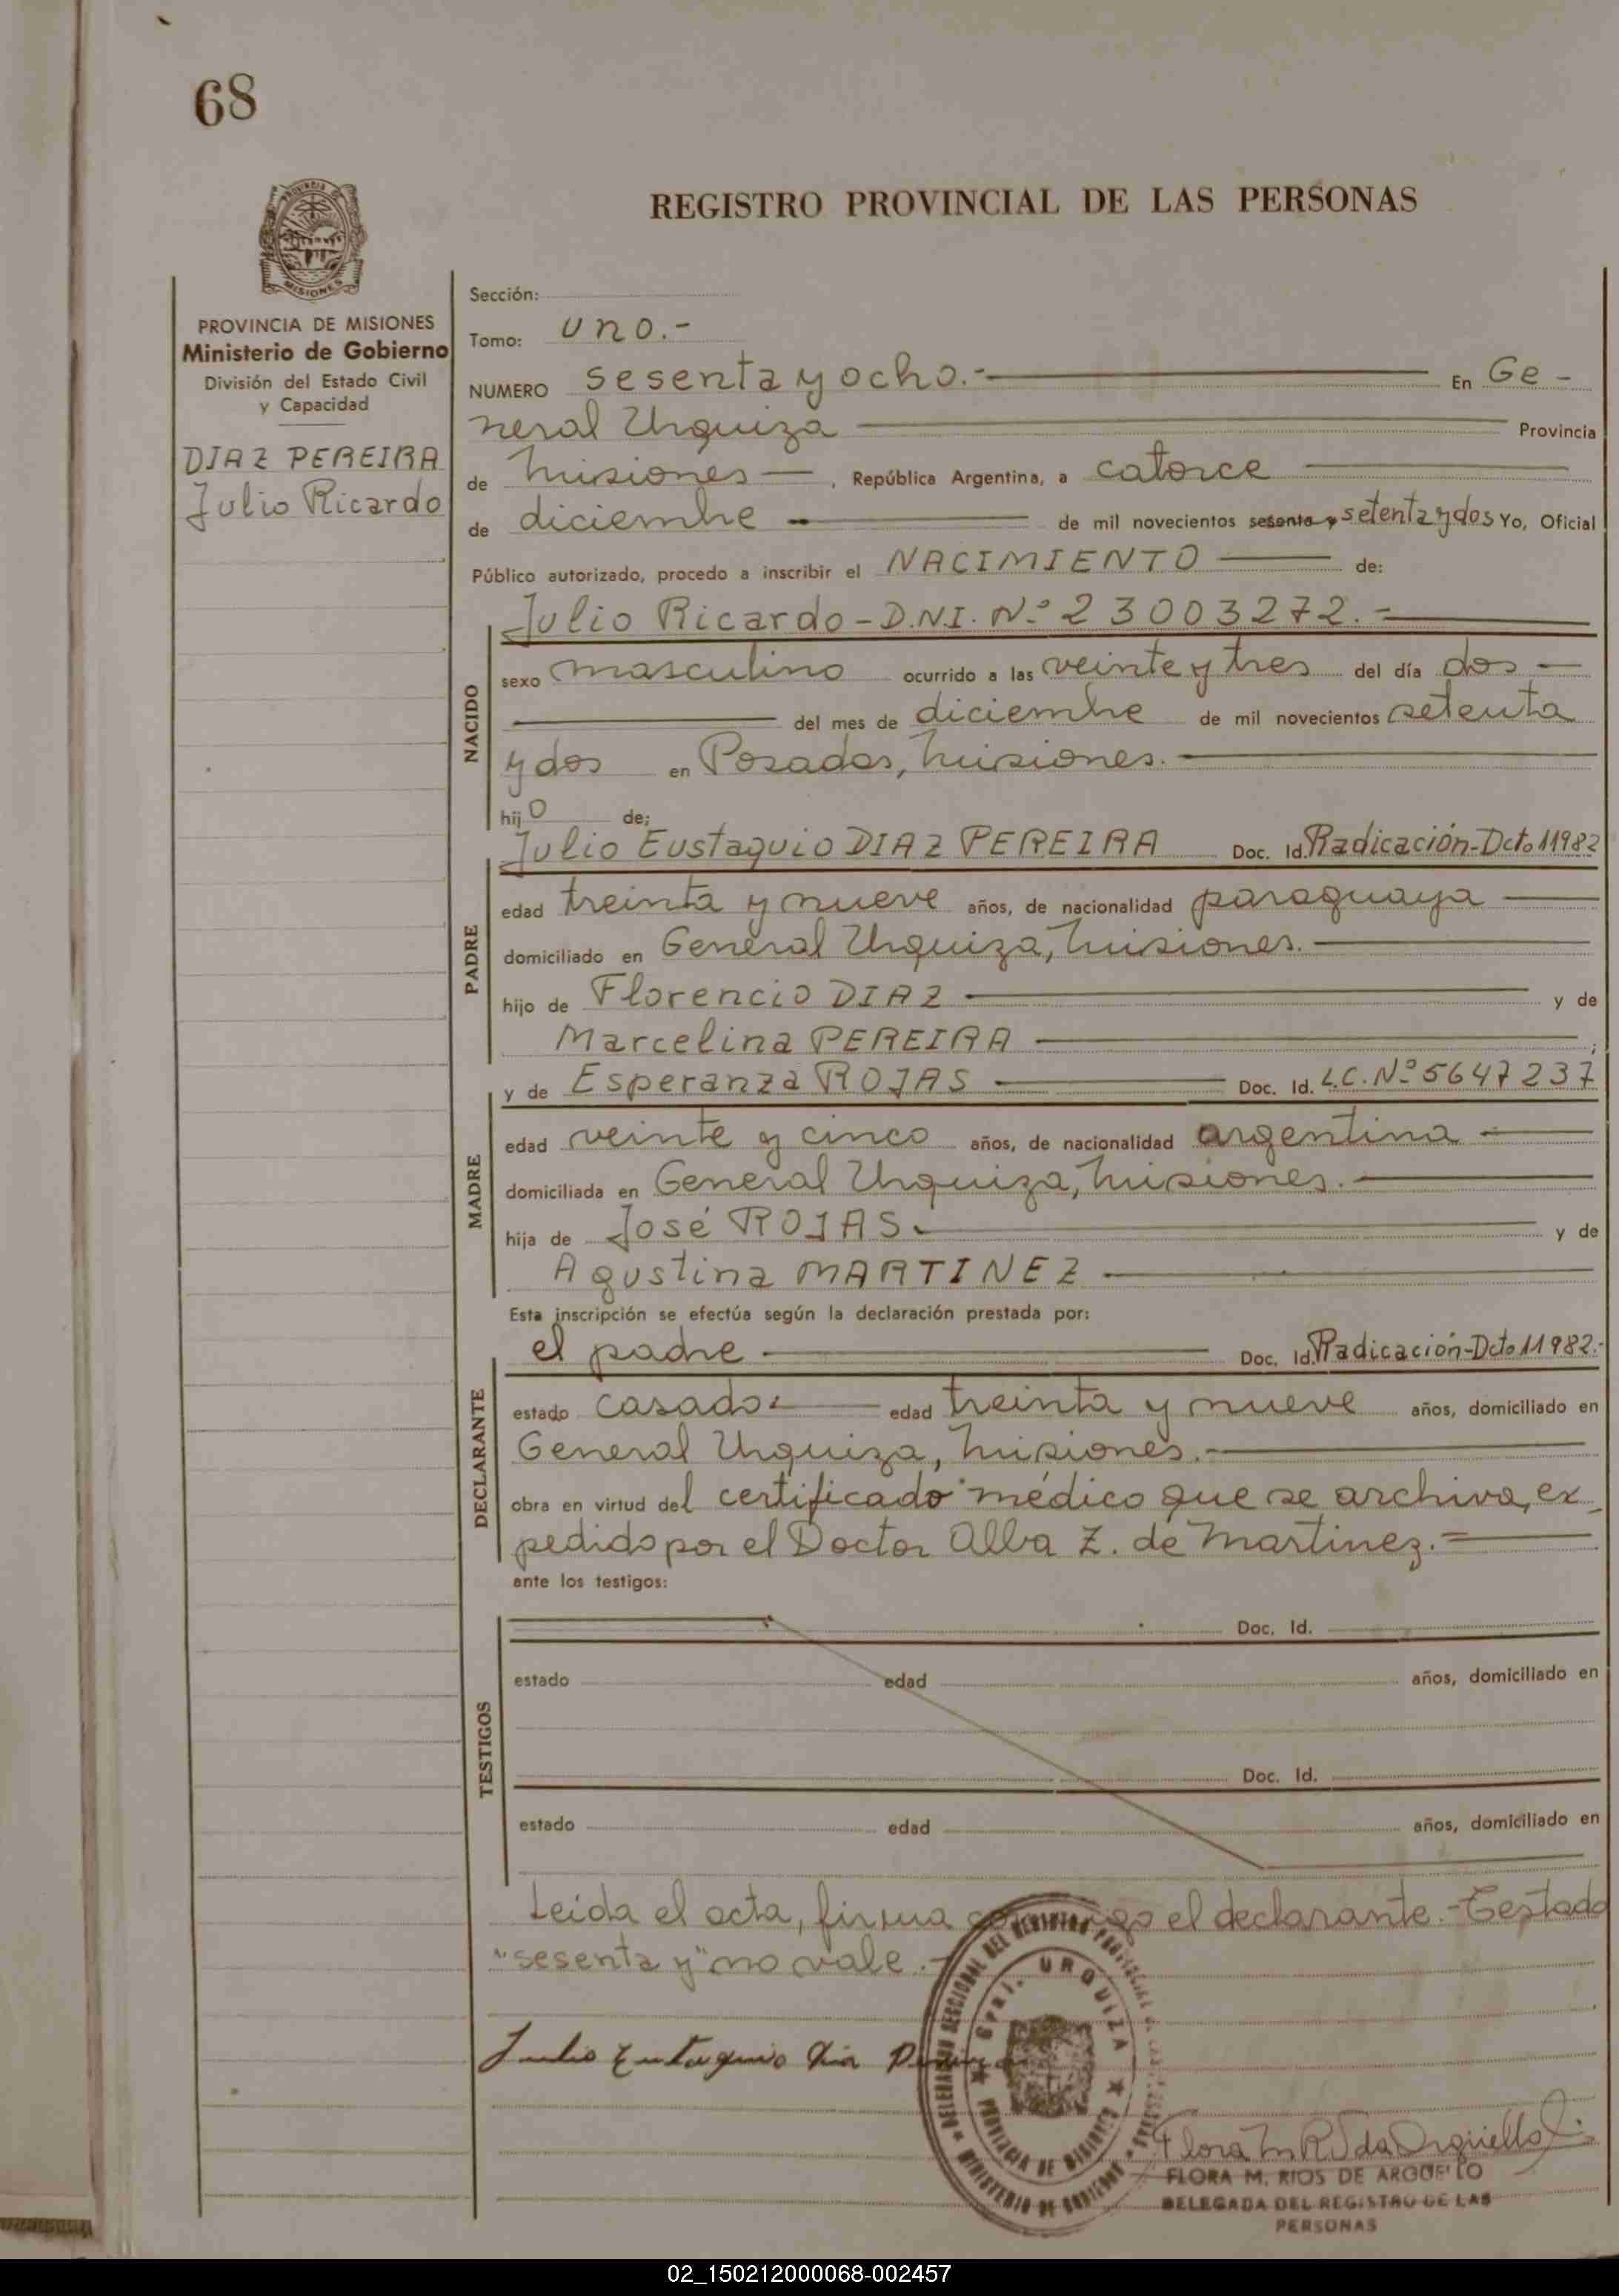 68
REGISTRO PROVINCIAL DE LAS PERSONAS
MISIONES
PROVINCIA DE MISIONES
Ministerio de Gobierno
División del Estado Civil
y Capacidad
DIAZ PEREIRA
Julio Ricardo
Sección:
Tomo: uno.-
NUMERO sesenta y ocho.- En Ge-
neral Urquiza Provincia
de Misiones, República Argentina, a catorce
de diciembre de mil novecientos sesenta y setenta y dos Yo, Oficial
Público autorizado, procedo a inscribir el NACIMIENTO de:
Julio Ricardo - D.N.I. Nº 23003272.-
NACIDO
sexo masculino ocurrido a las veinte y tres del día dos
del mes de diciembre de mil novecientos setenta
y dos en Posadas, Misiones.
hijo de;
Julio Eustaquio DIAZ PEREIRA Doc. Id. Radicación-Dcto 11982
PADRE
edad treinta y nueve años, de nacionalidad paraguaya
domiciliado en General Urquiza, Misiones.
hijo de Florencio DIAZ y de
Marcelina PEREIRA ;
y de Esperanza ROJAS Doc. Id. L.C. Nº 5647237
MADRE
edad veinte y cinco años, de nacionalidad argentina
domiciliada en General Urquiza, Misiones.
hija de José ROJAS y de
Agustina MARTINEZ
Esta inscripción se efectúa según la declaración prestada por:
el padre Doc. Id. Radicación-Dcto 11982.-
DECLARANTE
estado casado edad treinta y nueve años, domiciliado en
General Urquiza, Misiones.
obra en virtud del certificado médico que se archiva, ex-
pedido por el Doctor Alba Z. de Martinez.
ante los testigos:
TESTIGOS
Doc. Id.
estado edad años, domiciliado en
Doc. Id.
estado edad años, domiciliado en
Leida el acta, firma conmigo el declarante.- Testado
"sesenta y" no vale.-
Julio Eutaquio Dia Pereira
DELEGACION SECCIONAL DEL REGISTRO PROVINCIAL DE LAS PERSONAS
Gral. URQUIZA
PROVINCIA DE MISIONES
MINISTERIO DE GOBIERNO
FLORA M. RIOS DE ARGUELLO
DELEGADA DEL REGISTRO DE LAS
PERSONAS
02_150212000068-002457